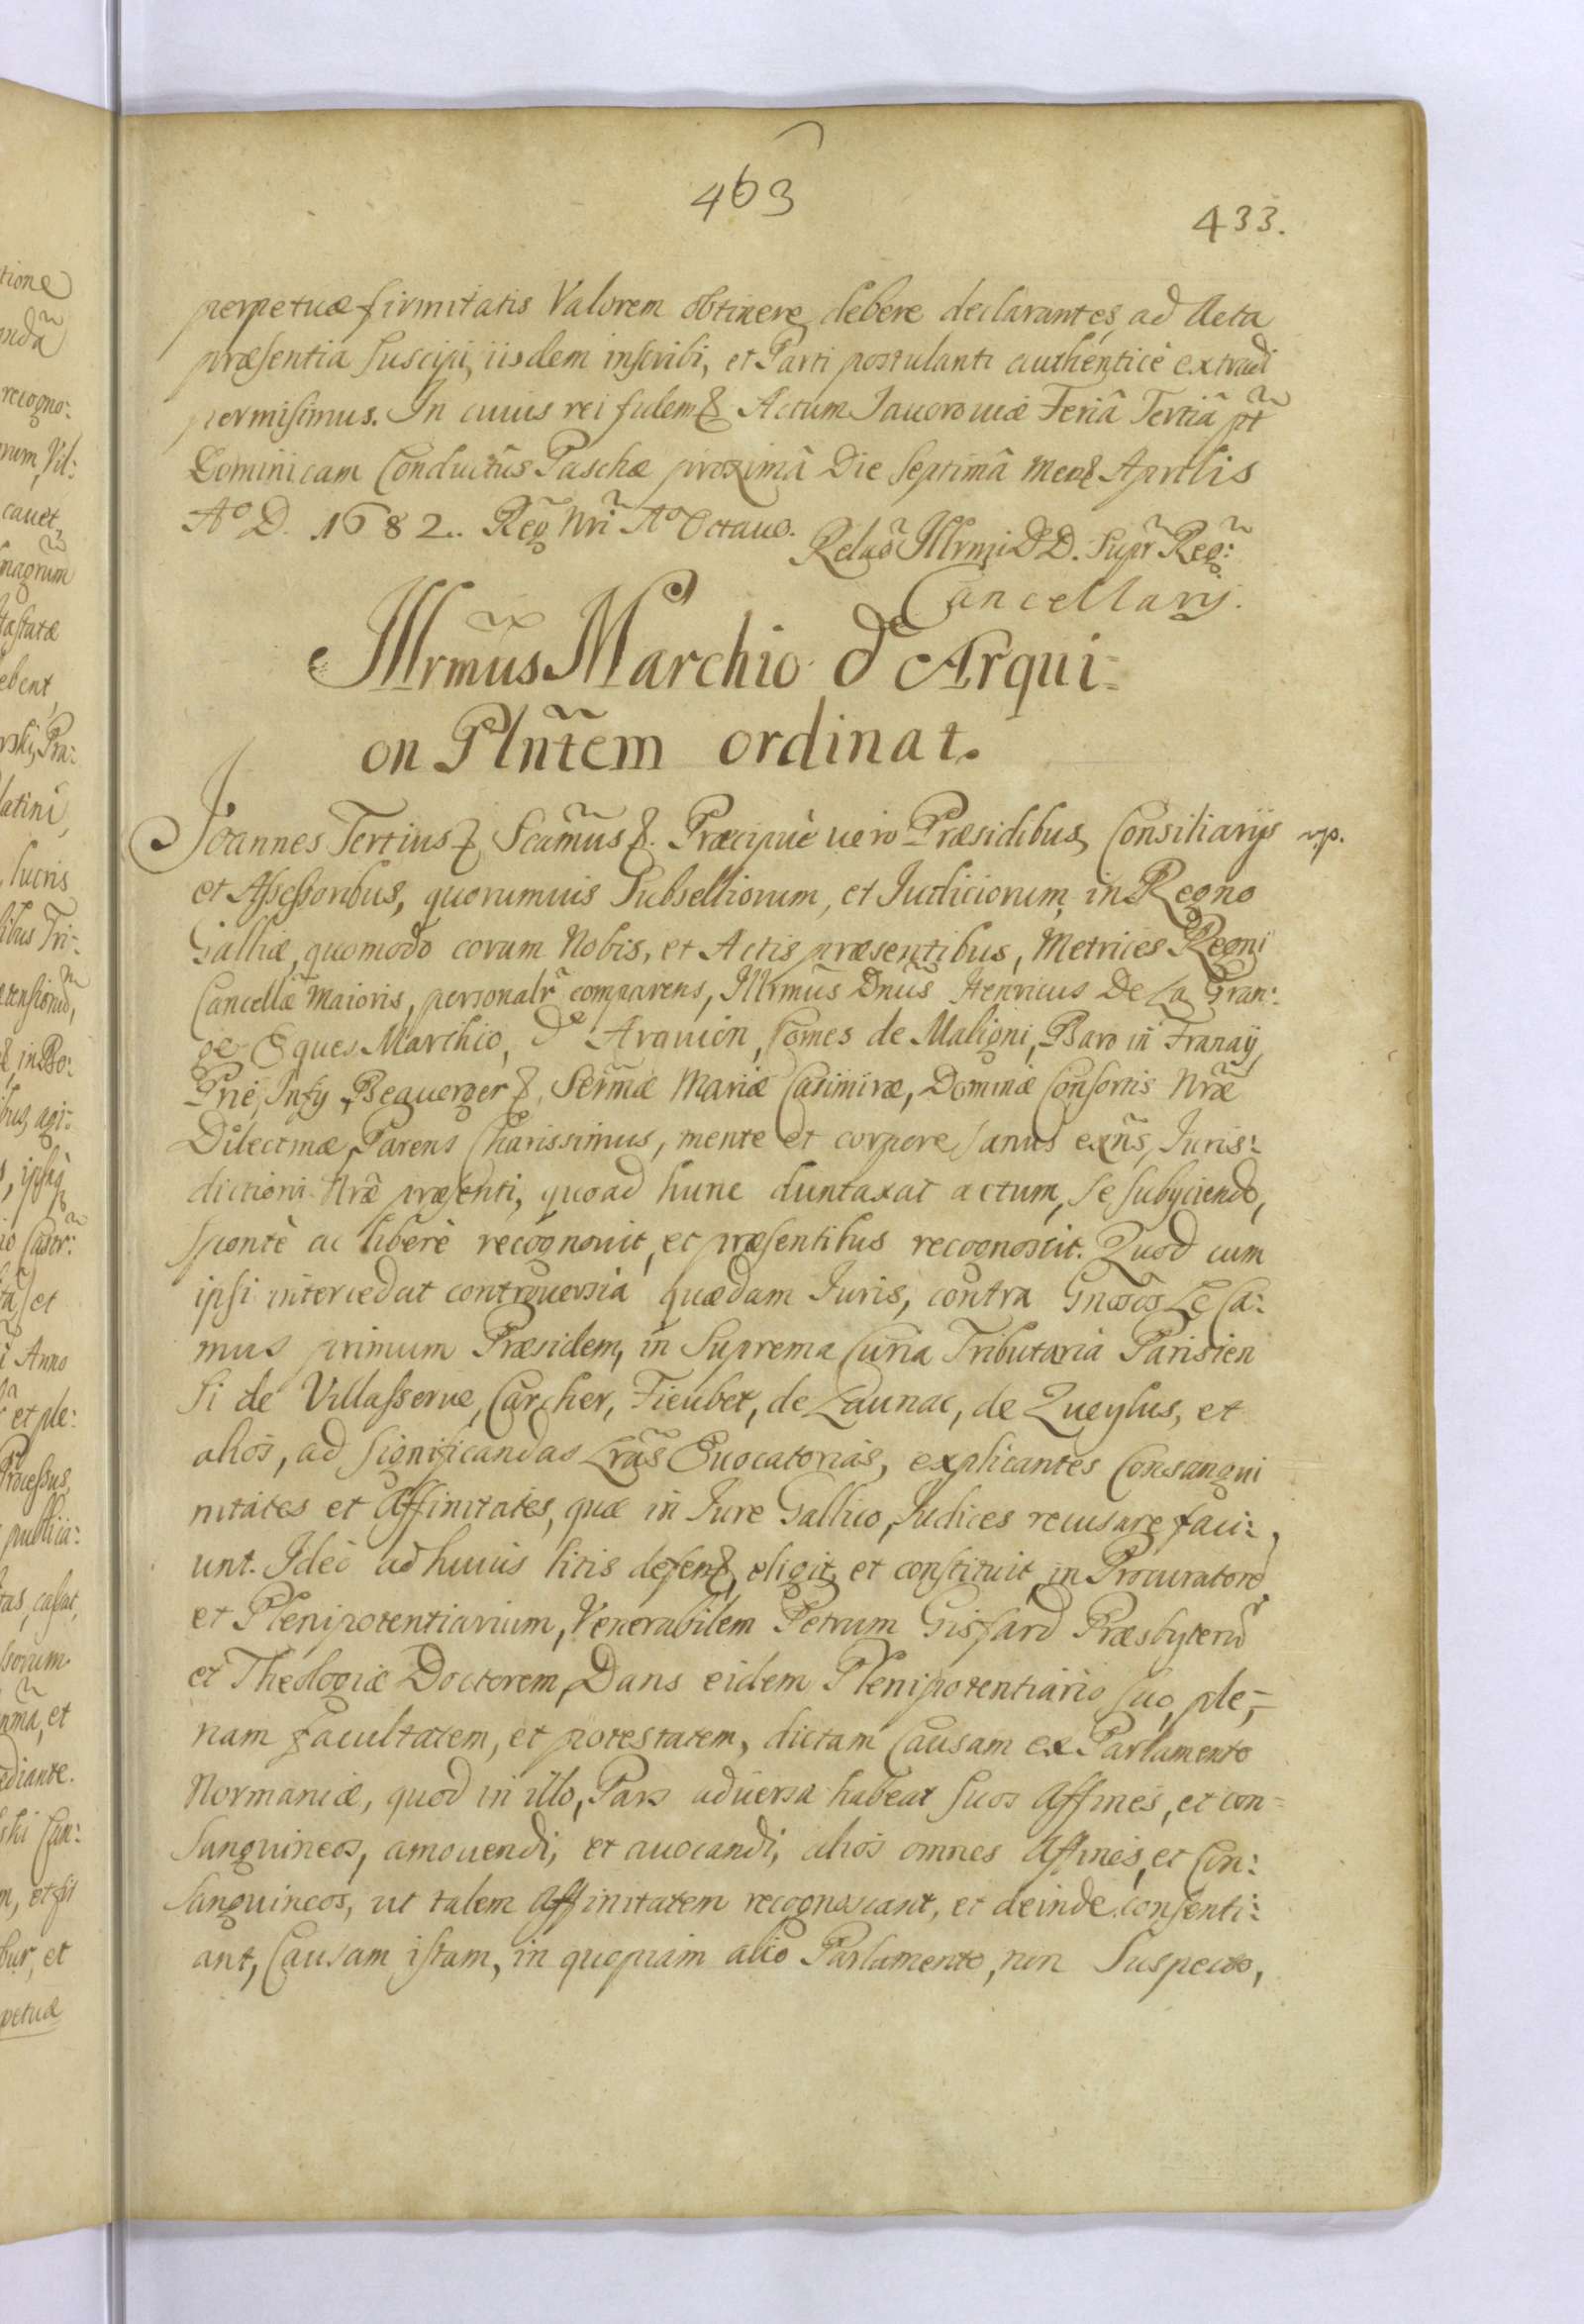 463
433.
perpetuæ firmitatis Valorem obtinere debere declarantes, ad Acta
præsentia suscipi, iisdem inscribi, et Parti postulanti authenticè extradi
permisimus. In cuius rei fidem & Actum Iauoroviæ Feriâ Tertiâ pt̃
Dominicam Conductûs Paschæ proximâ Die Septimâ Mens Aprilis
Aº D. 1682. Reg̃ Nrĩ Aº Octauo. Relaõ Illrmi DD. Supr̃ Reg̃:
Cancellarij.
Illrmũs Marchio d'Arqui-
on Plñtem ordinat.
Joannes Tertius & Scimũs &. Præcipuè uero Præsidibus, Consiliarijs
et Assessoribus, quorumuis Subselliorum, et Iudiciorum, in Regno
Galliæ, quomodo coram Nobis, et Actis præsentibus, Metrices Regni
Cancellæ Maioris, personalr̃ comparens, Illrmũs Dnũs Henricus De La Gran:
ge Eques Marchio, d' Arquion, Comes de Maligni, Baro in Franaÿ,
Prie, Infy, Beguerger &, Sermæ̃ Mariæ Casimiræ, Dominæ Consortis Nræ̃
Dilectmæ, Parens Charissimus, mente et corpore sanus exñs, Iuris:
dictioni Nræ̃ præsenti, quoad hunc duntaxat actum, se subyciendo,
sponte ac liberè recognouit, et præsentibus recognoscit. Quod cum
ipsi intercedat controuersia quædam Iuris, contra Gnõsos Le Ca:
mus primum Præsidem, in Suprema Curia Tributaria Parisien
si de Villasserue, Carcher, Fieubet, de Launac, de Queylus, et
alios, ad significandas Lrãs Euocatorias, explicantes Consangui
nitates et Affinitates, quæ in Iure Gallico, Iudices recusare faci:
unt. Ideò ad huius litis defens, eligit, et constituit, in Procuratorẽ
et Plenipotentiarium, Venerabilem Petrum Gisfard Præsbyterũ
et Theologiæ Doctorem, Dans eidem Plenipotentiario suo, ple-
nam facultatem, et potestatem, dictam Causam ex Parlamento
Normaniæ, quod in illo, Pars aduersa habeat suos Affines, et con-
sanguineos, amouendi, et auocandi, alios omnes Affines, et Con:
sanguineos, ut talem Affinitatem recognoscant, et deinde consenti:
ant, Causam istam, in quopiam alio Parlamento, non Suspecto,